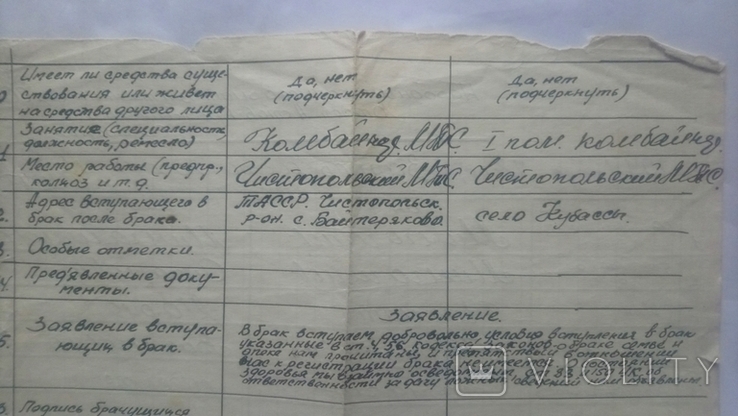 Имеет ли средства суще-
ствования или живет
на средства другого лица
Да, нет
(подчеркнуть)
Да, нет
(подчеркнуть)
Занятия (специальность,
должность, ремесло)
Комбайнер МТС.
I пом. комбайнер.
Место работы (предпр.,
колхоз и т.д.
Чистопольский МТС.
Чистопольский МТС.
Адрес вступающего в
брак после брака.
ТАССР. Чистопольск.
р-он. с. Байтеряково.
село Кубассы.
3. Особые отметки.
4. Предъявленные доку-
менты.
Заявление вступа-
ющих в брак.
Заявление.
В брак вступаем добровольно условия вступления в брак
указанные в ст. Кодекса законов о браке семье и
опеке нам прочитаны, и препятствий в отношении
нас к регистрации брака не имеется о состоянии
здоровья мы взаимно осведомлены. об
ответственности за дачу ложных сведений
Подпись брачущихся
VIOLITY